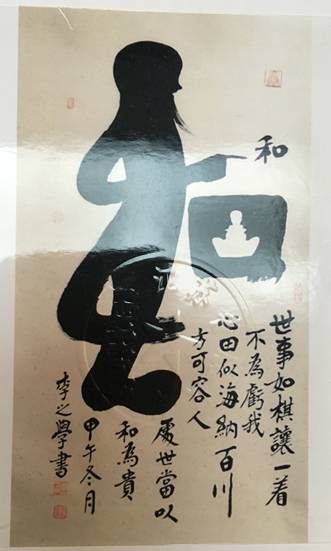 和
世事如棋讓一着
不為虧我
心田似海納百川
方可容人
處世當以
和為貴
甲午冬月
李之學書